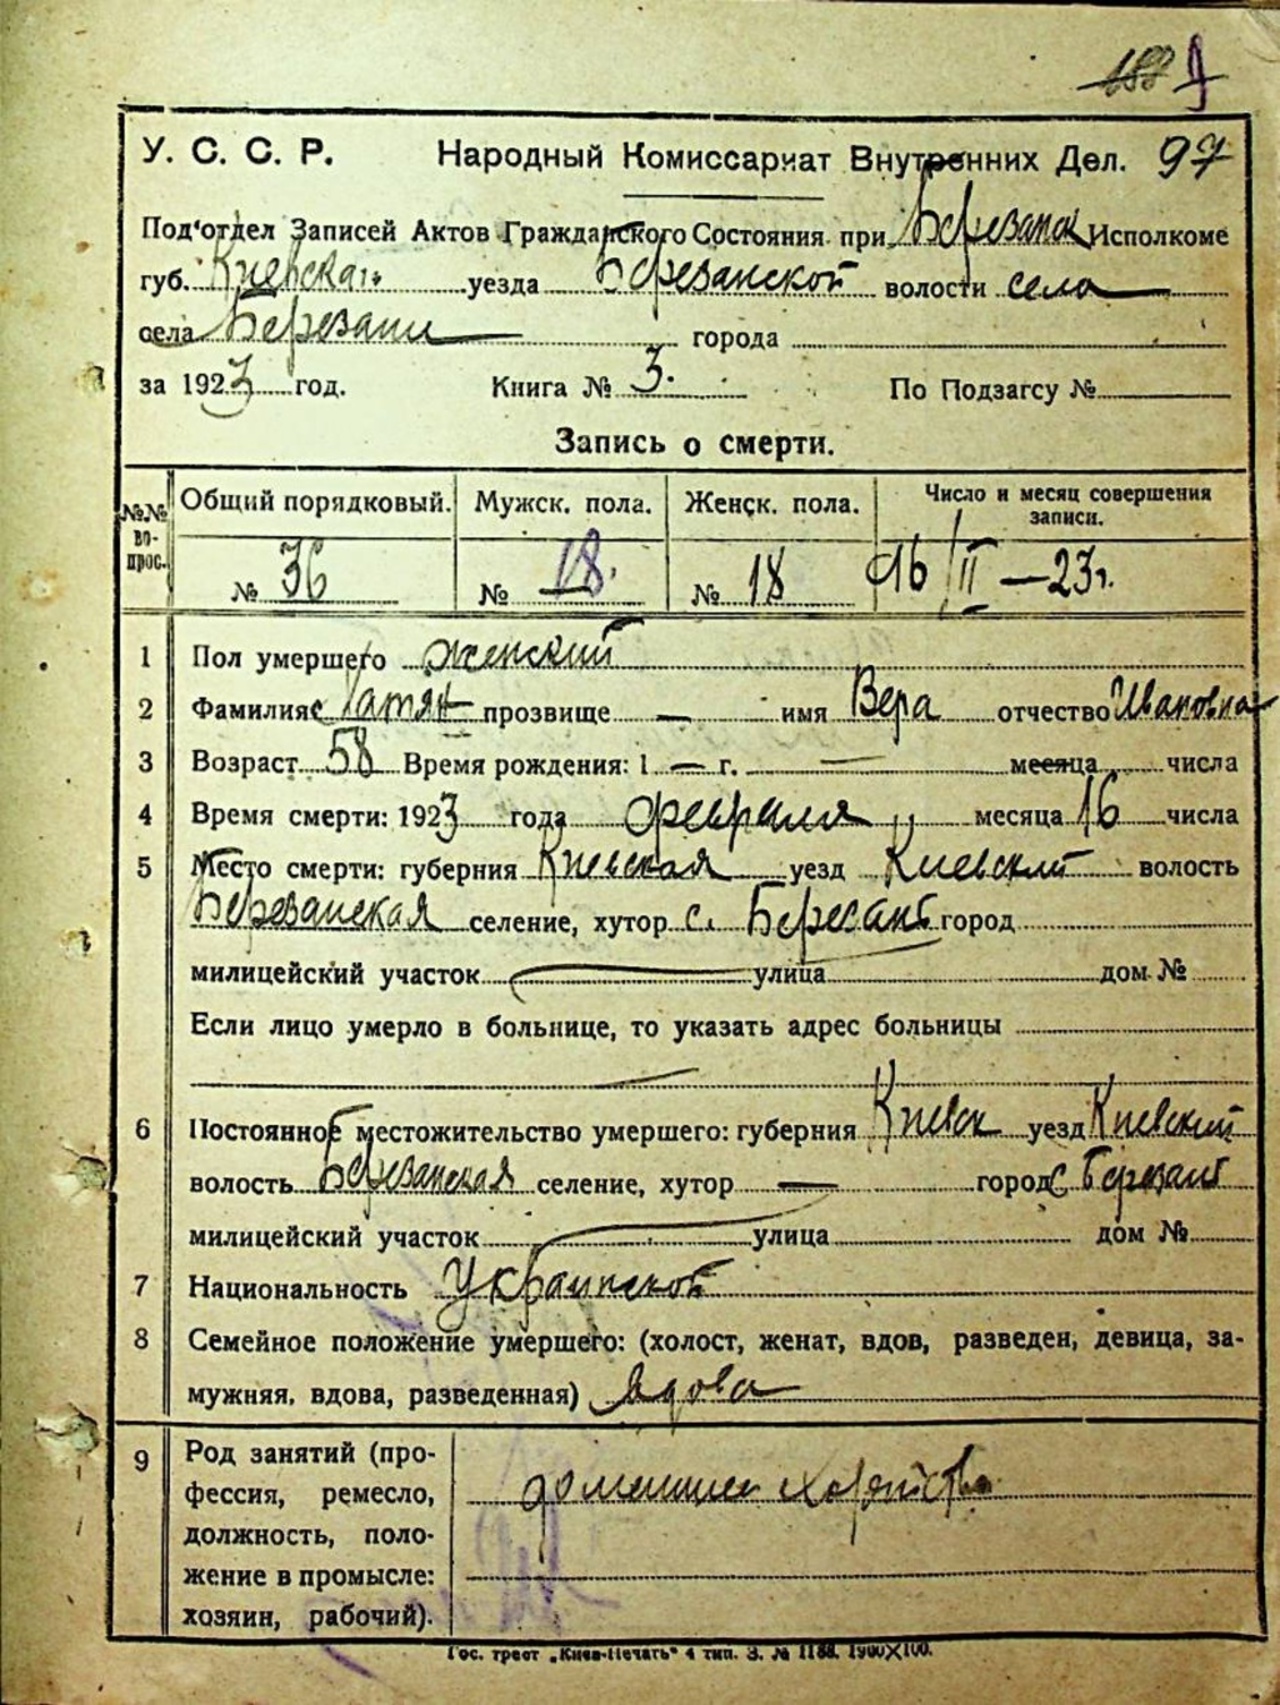 9
У. С. С. Р. Народный Комиссариат Внутренних Дел. 97
Под'отдел Записей Актов Гражданского Состояния при Березанск Исполкоме
губ. Киевская уезда Березанской волости села
села Березани города
за 1923 год. Книга № 3. По Подзагсу №
Запись о смерти.
№№ вопрос. Общий порядковый. Мужск. пола. Женск. пола. Число и месяц совершения записи.
№ 36 № 18. № 18 16/II—23г.
1 Пол умершего женский
2 Фамилия прозвище — имя Вера отчество Ивановна
3 Возраст 58 Время рождения: 1 — г. — месяца числа
4 Время смерти: 1923 года февраля месяца 16 числа
5 Место смерти: губерния Киевская уезд Киевский волость
Березанская селение, хутор с. Березань город
милицейский участок — улица дом №
Если лицо умерло в больнице, то указать адрес больницы
—
6 Постоянное местожительство умершего: губерния Киевск уезд Киевский
волость Березанская селение, хутор — город с Березань
милицейский участок — улица дом №
7 Национальность Украинской
8 Семейное положение умершего: (холост, женат, вдов, разведен, девица, за-
мужняя, вдова, разведенная) вдова
9 Род занятий (про-
фессия, ремесло, домашнее хозяйство
должность, поло-
жение в промысле:
хозяин, рабочий).
Гос. трест „Киев-Печать" 4 тип. З. № 1188. 1900×100.